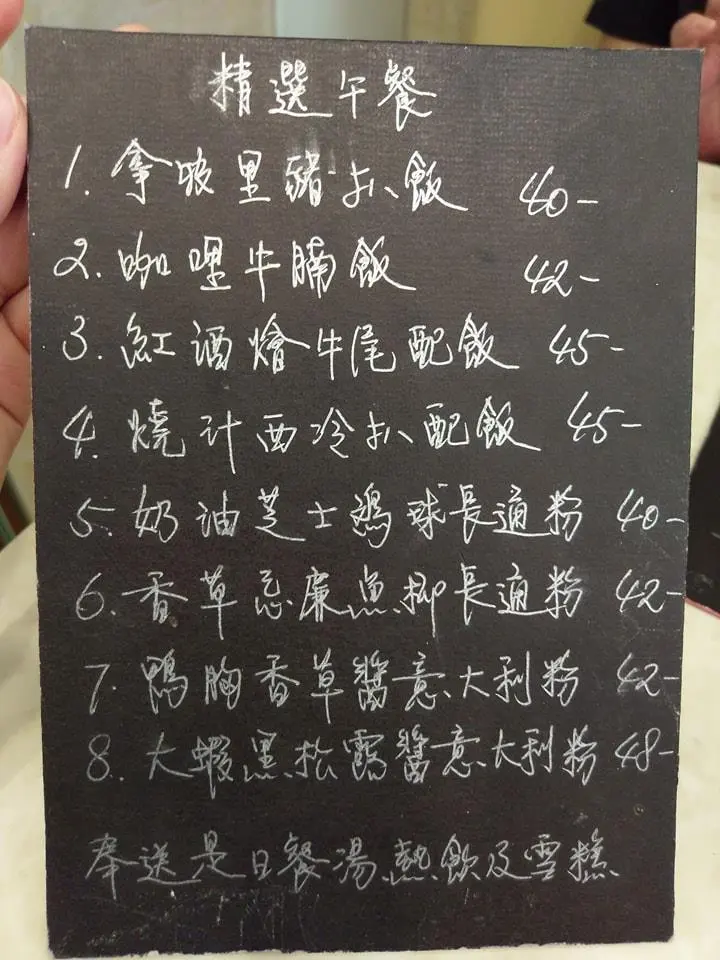 精選午餐
1. 拿坡里豬扒飯 40-
2. 咖哩牛腩飯 42-
3. 紅酒燴牛尾配飯 45-
4. 燒汁西冷扒配飯 45-
5. 奶油芝士鷄球長通粉 40-
6. 香草忌廉魚柳長通粉 42-
7. 鴨胸香草醬意大利粉 42-
8. 大蝦黑松露醬意大利粉 48-
奉送是日餐湯、熱飲及雪糕